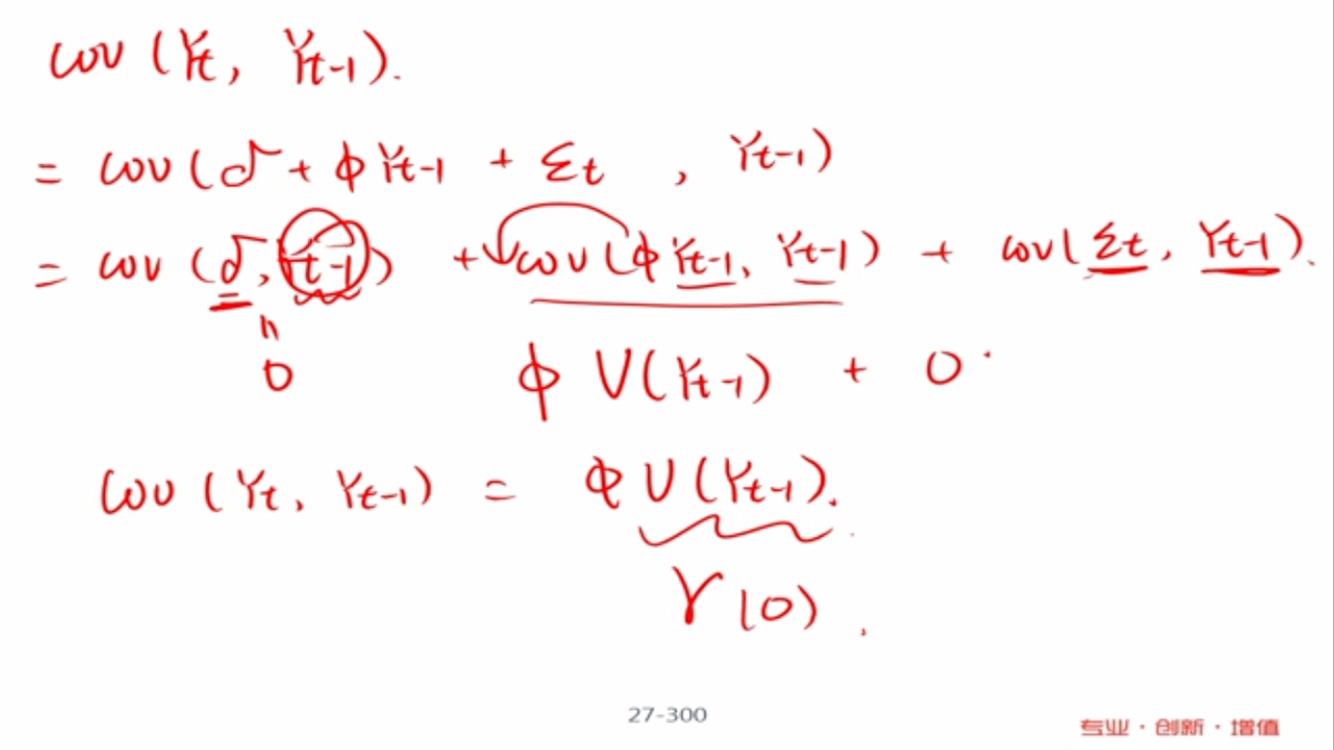 cov (Yt, Yt-1).
= cov (δ + φ Yt-1 + Σt , Yt-1)
= cov (δ, Yt-1) + cov (φ Yt-1, Yt-1) + cov (Σt, Yt-1).
"
0
φ V(Yt-1) + 0
cov (Yt, Yt-1) = φ V(Yt-1).
γ (0)
27-300
专业·创新·增值